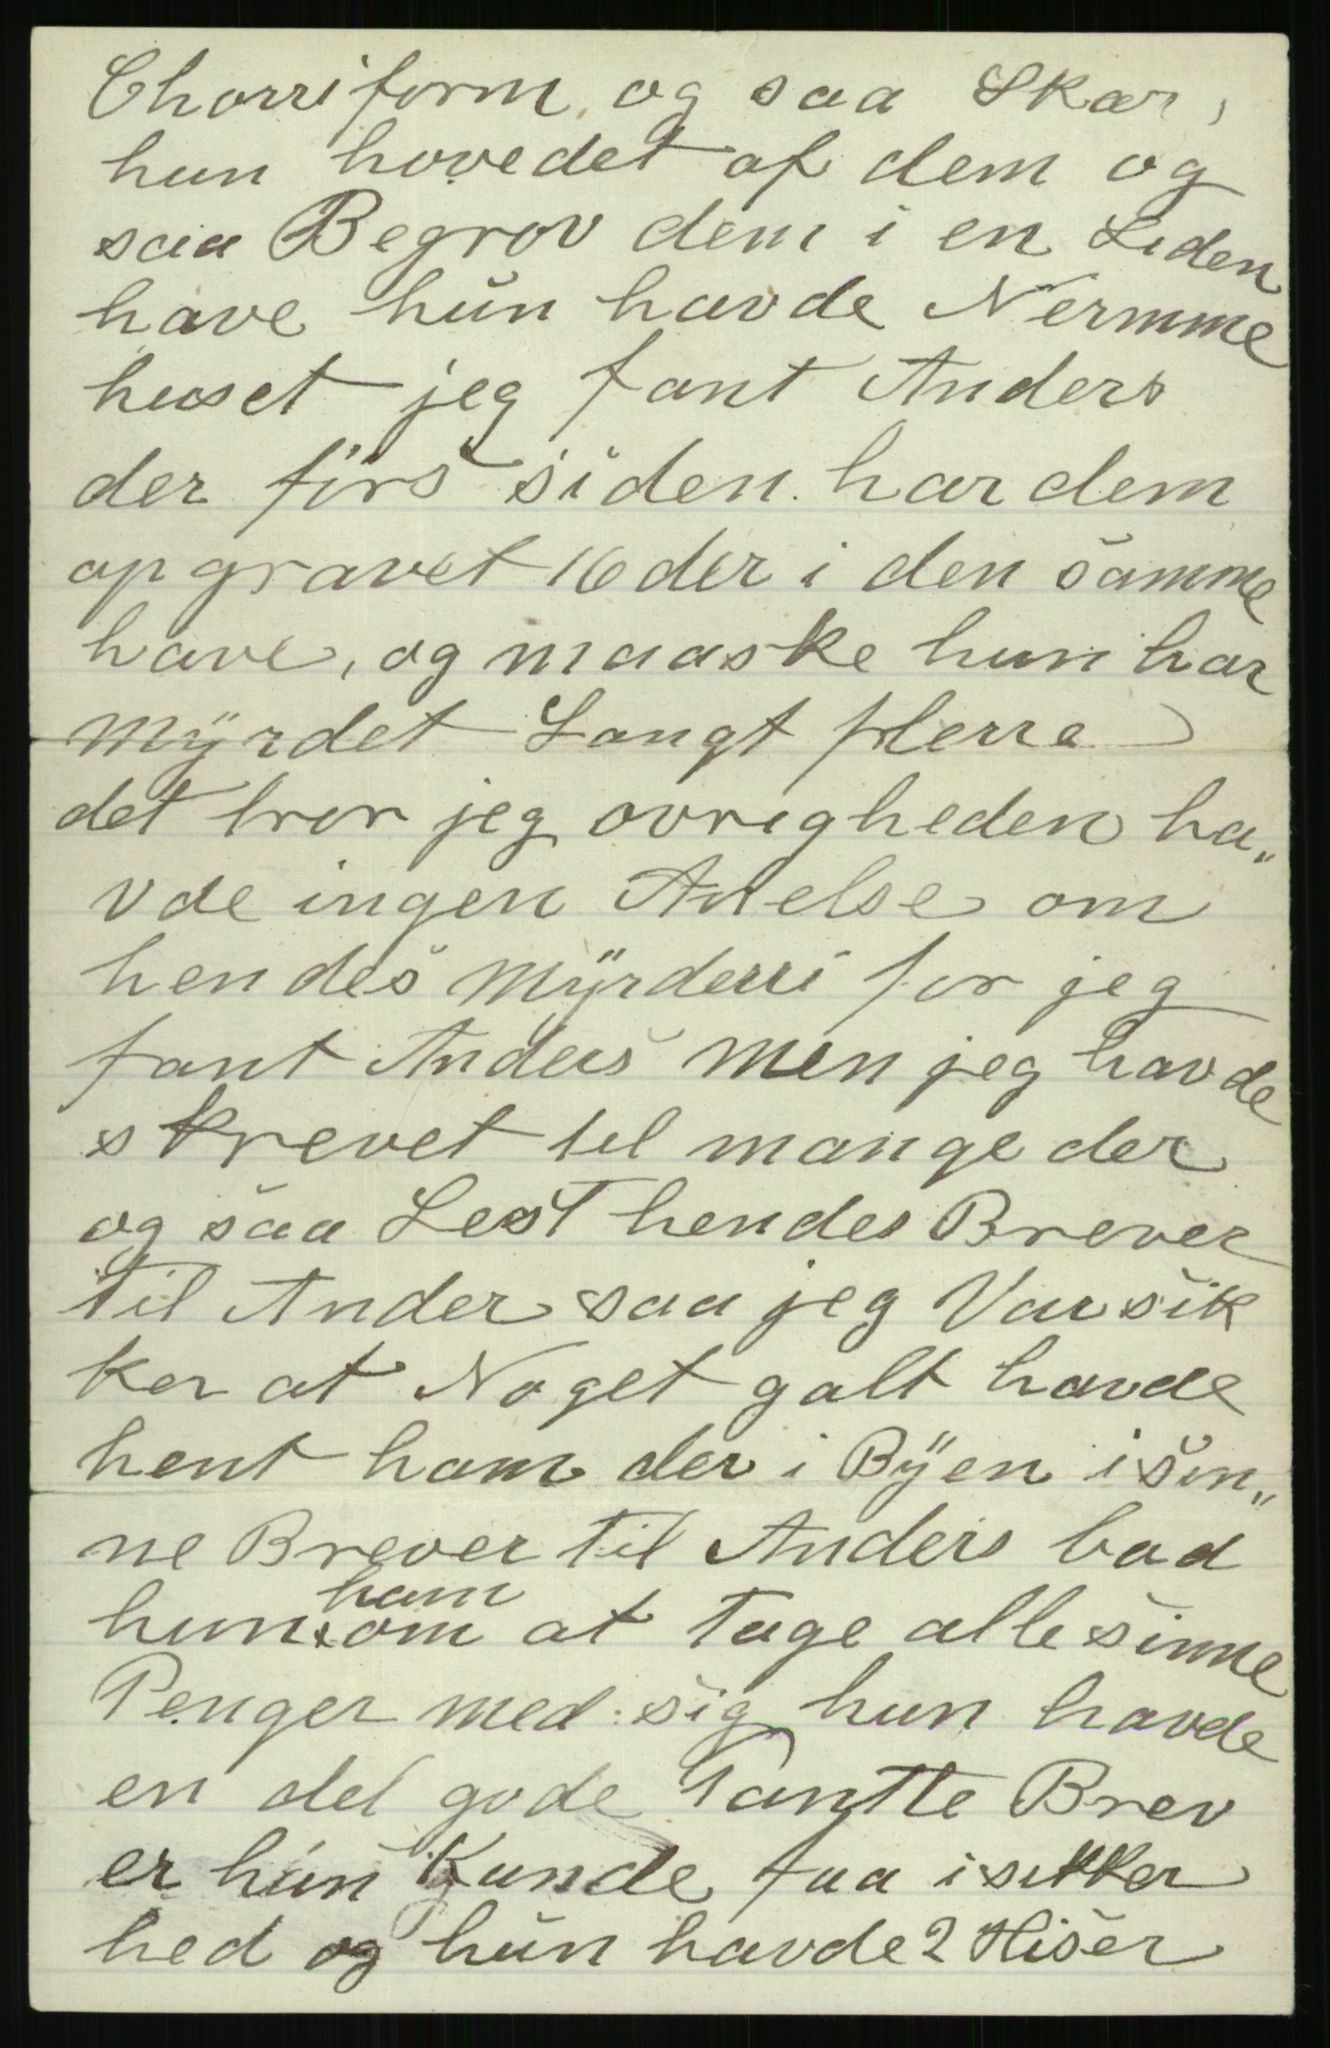 Chorriform og saa Skar,
hun hovedet af dem og
saa Begrov dem i en Liden
have hun havde Nermme
huset jeg fant Anders
der förs siden har dem
op gravet 16 der i den samme
have, og maaske hun har
Myrdet Langt flerre
det tror jeg ovrigheden ha„
vde ingen Anelse om
hendes Myrderri for jeg
fant Anders men jeg havde
skrevet til mange der
og saa Lest hendes Brever
til Ander saa jeg Var sik
ker at Noget galt havde
hent ham der i Byen i sin„
ne Brever til Anders bad
hun ham om at Tage alle sinne
Penger med sig hun havde
en del gode Pantte Brev
er hun Kunde faa i sikker
hed og hun havde 2 Hiser